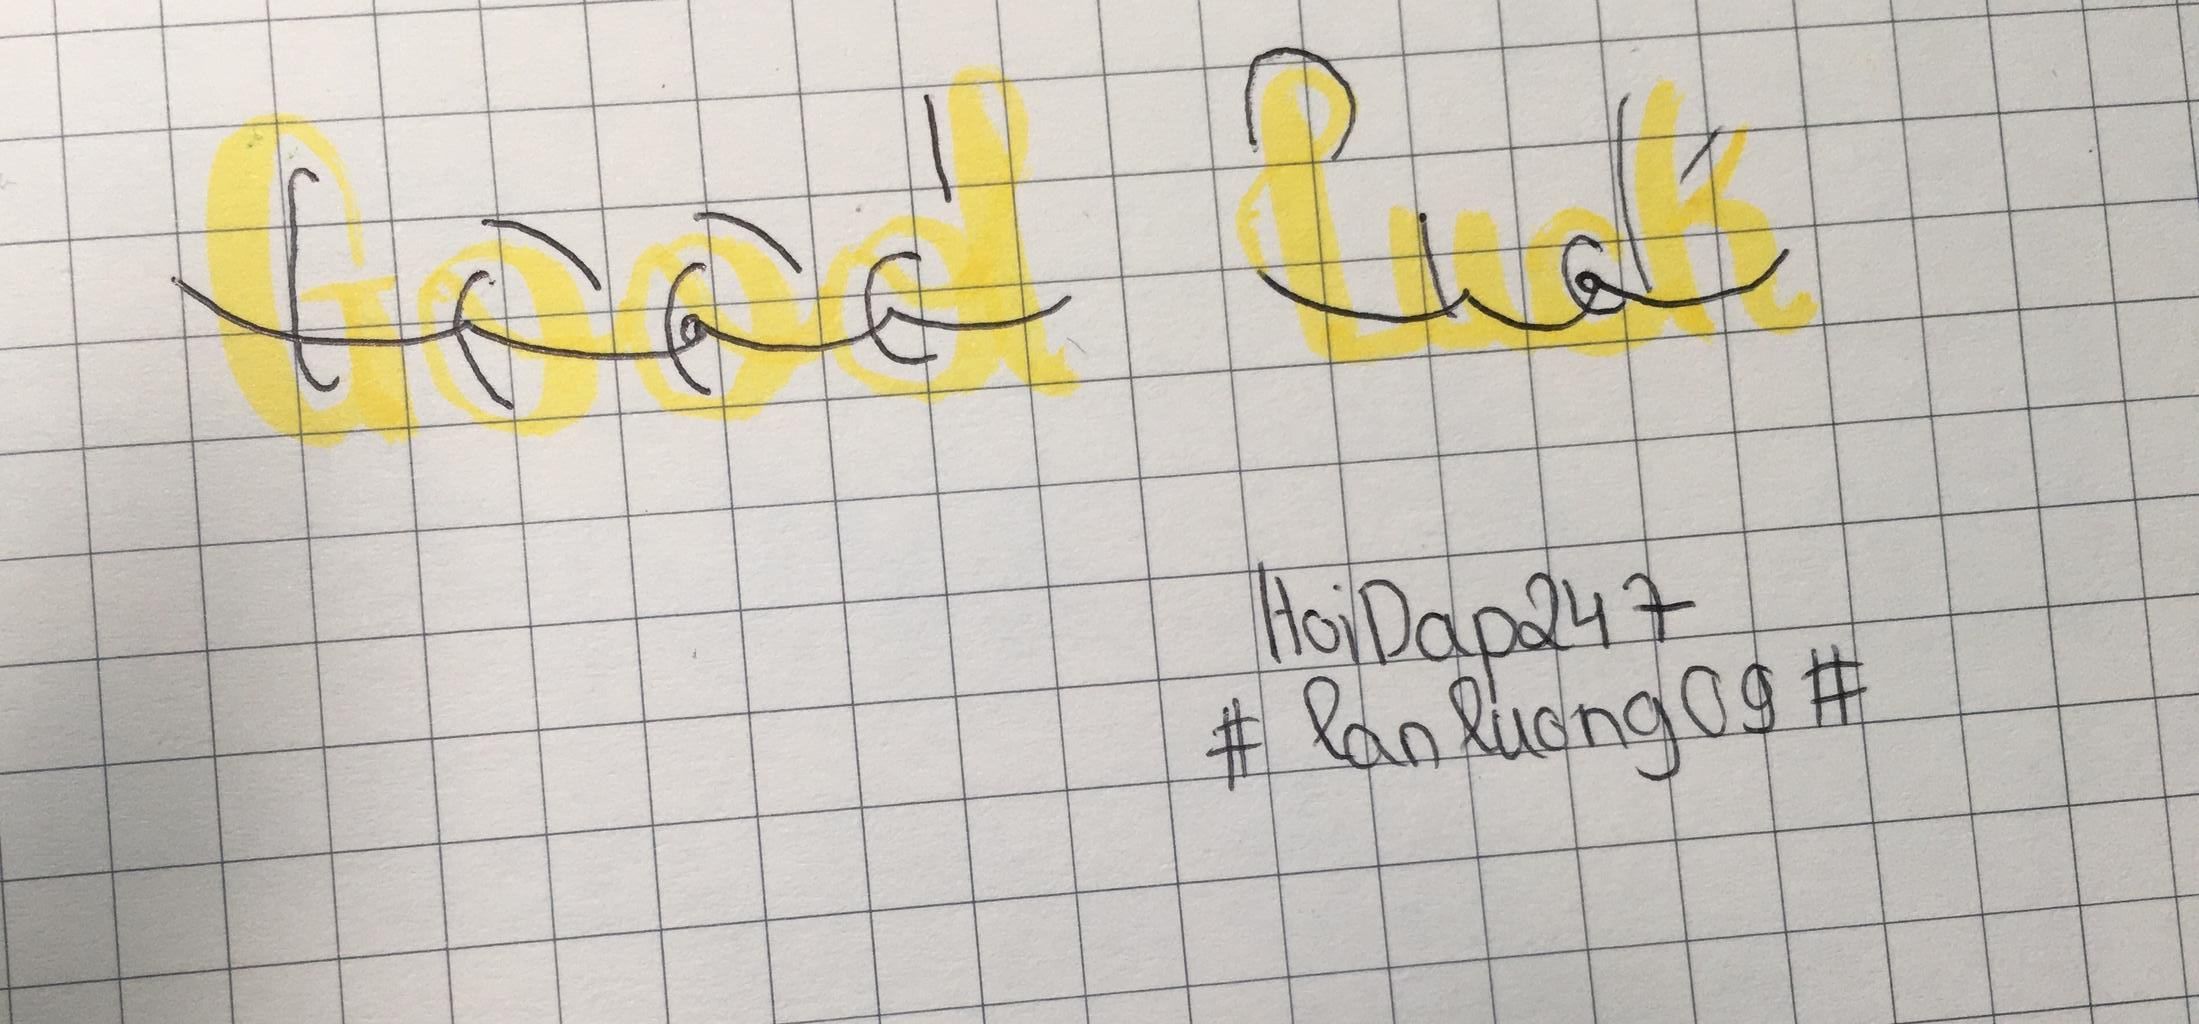 Good luck
HoiDap247
# lanluong09 #